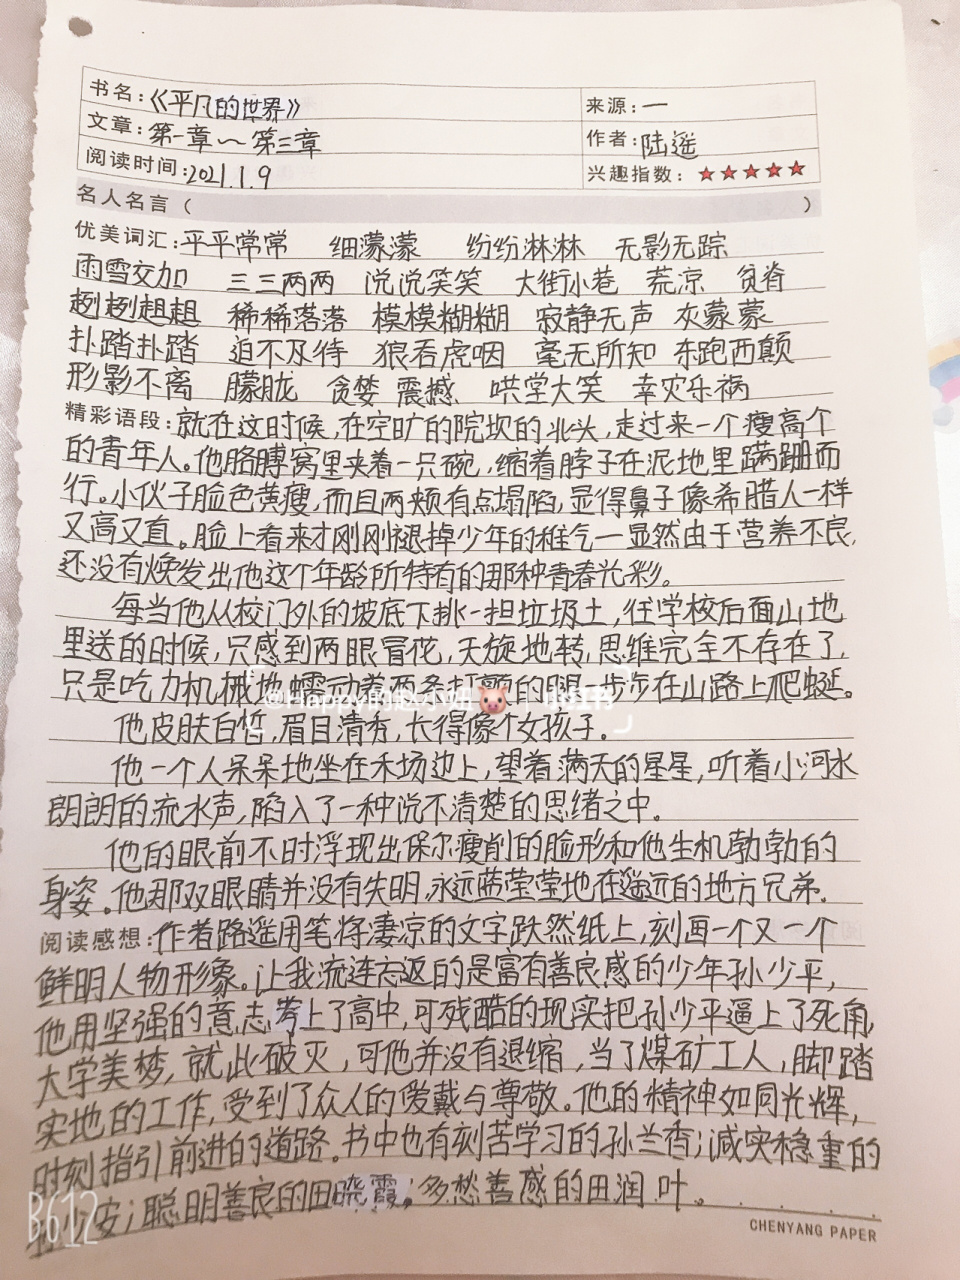 书名:《平凡的世界》 来源:一
文章:第一章～第三章 作者:陆遥
阅读时间:2021.1.9 兴趣指数:★★★★★
名人名言( )
优美词汇:平平常常 细濛濛 纷纷淋淋 无影无踪
雨雪交加 三三两两 说说笑笑 大街小巷 荒凉 贫脊
趔趔趄趄 稀稀落落 模模糊糊 寂静无声 灰蒙蒙
扑踏扑踏 迫不及待 狼吞虎咽 毫无所知 东跑西颠
形影不离 朦胧 贪婪 震撼 哄堂大笑 幸灾乐祸
精彩语段:就在这时候,在空旷的院坎的北头,走过来一个瘦高个
的青年人。他胳膊窝里夹着一只碗,缩着脖子在泥地里蹒跚而
行。小伙子脸色黄瘦,而且两颊有点塌陷,显得鼻子像希腊人一样
又高又直。脸上看来才刚刚褪掉少年的稚气一显然由于营养不良,
还没有焕发出他这个年龄所特有的那种青春光彩。
每当他从校门外的坡底下挑一担垃圾土,往学校后面山地
里送的时候,只感到两眼冒花,天旋地转,思维完全不存在了,
只是吃力机械地蠕动着两条打颤的腿一步步在山路上爬蜒。
@Happy的赵小妞🐷 小红书
他皮肤白皙,眉目清秀,长得像个女孩子。
他一个人呆呆地坐在禾场边上,望着满天的星星,听着小河水
朗朗的流水声,陷入了一种说不清楚的思绪之中。
他的眼前不时浮现出保尔瘦削的脸形和他生机勃勃的
身姿。他那双眼睛并没有失明,永远蓝莹莹地在遥远的地方兄弟.
阅读感想:作者路遥用笔将凄凉的文字跃然纸上,刻画一个又一个
鲜明人物形象。让我流连忘返的是富有善良感的少年孙少平,
他用坚强的意志考上了高中,可残酷的现实把孙少平逼上了死角,
大学美梦,就此破灭,可他并没有退缩,当了煤矿工人,脚踏
实地的工作,受到了众人的爱戴与尊敬。他的精神如同光辉,
时刻指引前进的道路。书中也有刻苦学习的孙兰香;诚实稳重的
少安;聪明善良的田晓霞;多愁善感的田润叶。
B612
CHENYANG PAPER